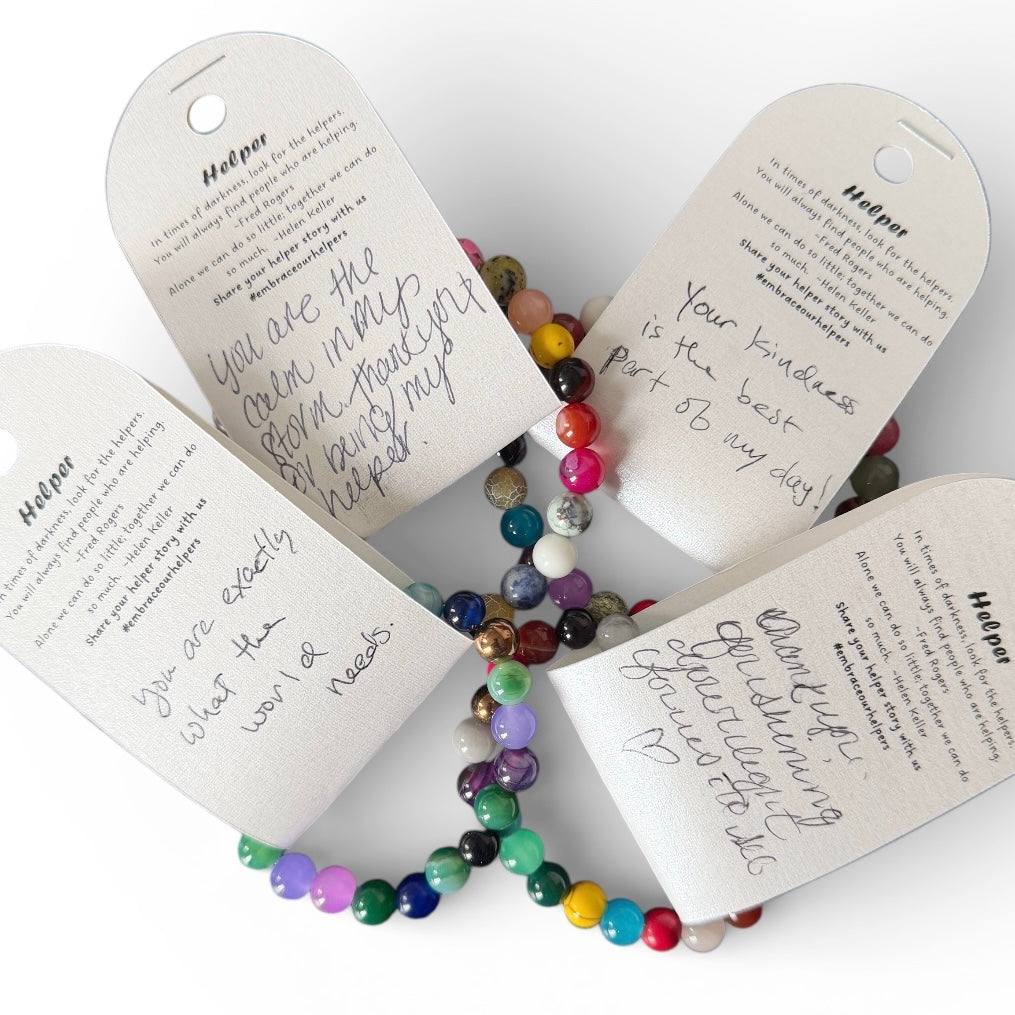 Helper
In times of darkness, look for the helpers.
You will always find people who are helping.
~Fred Rogers
Alone we can do so little; together we can do
so much. ~Helen Keller
Share your helper story with us
#embraceourhelpers
You are the
calm in my
storm. thank you
for being my
helper.
Helper
In times of darkness, look for the helpers.
You will always find people who are helping.
~Fred Rogers
Alone we can do so little; together we can do
so much. ~Helen Keller
Share your helper story with us
#embraceourhelpers
Your kindness
is the best
part of my day!
Helper
In times of darkness, look for the helpers.
You will always find people who are helping.
~Fred Rogers
Alone we can do so little; together we can do
so much. ~Helen Keller
Share your helper story with us
#embraceourhelpers
You are exactly
what the
world needs.
Helper
In times of darkness, look for the helpers.
You will always find people who are helping.
~Fred Rogers
Alone we can do so little; together we can do
so much. ~Helen Keller
Share your helper story with us
#embraceourhelpers
Thank you
for shining
your light
for us to see